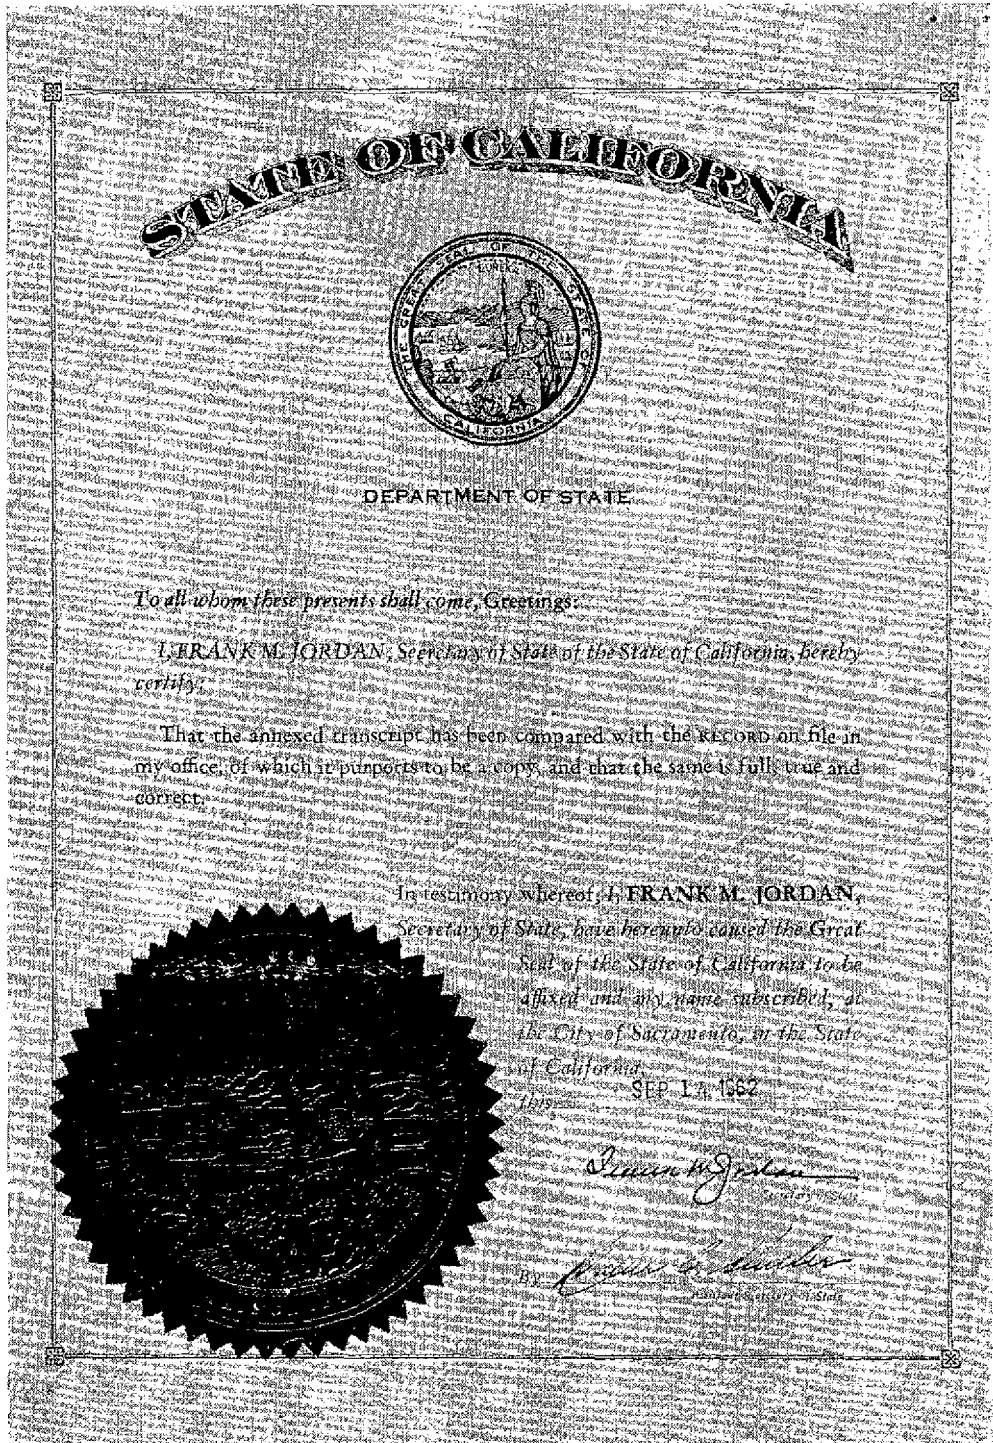 STATE OF CALIFORNIA
THE GREAT SEAL OF THE STATE OF CALIFORNIA
EUREKA
DEPARTMENT OF STATE
To all whom these presents shall come, Greetings:
I, FRANK M. JORDAN, Secretary of State of the State of California, hereby
certify:
That the annexed transcript has been compared with the RECORD on file in
my office, of which it purports to be a copy, and that the same is full, true and
correct.
In testimony whereof, I, FRANK M. JORDAN,
Secretary of State, have hereunto caused the Great
Seal of the State of California to be
affixed and my name subscribed, at
the City of Sacramento, in the State
of California,
this SEP 14 1962
Frank M. Jordan
Secretary of State
By
Assistant Secretary of State